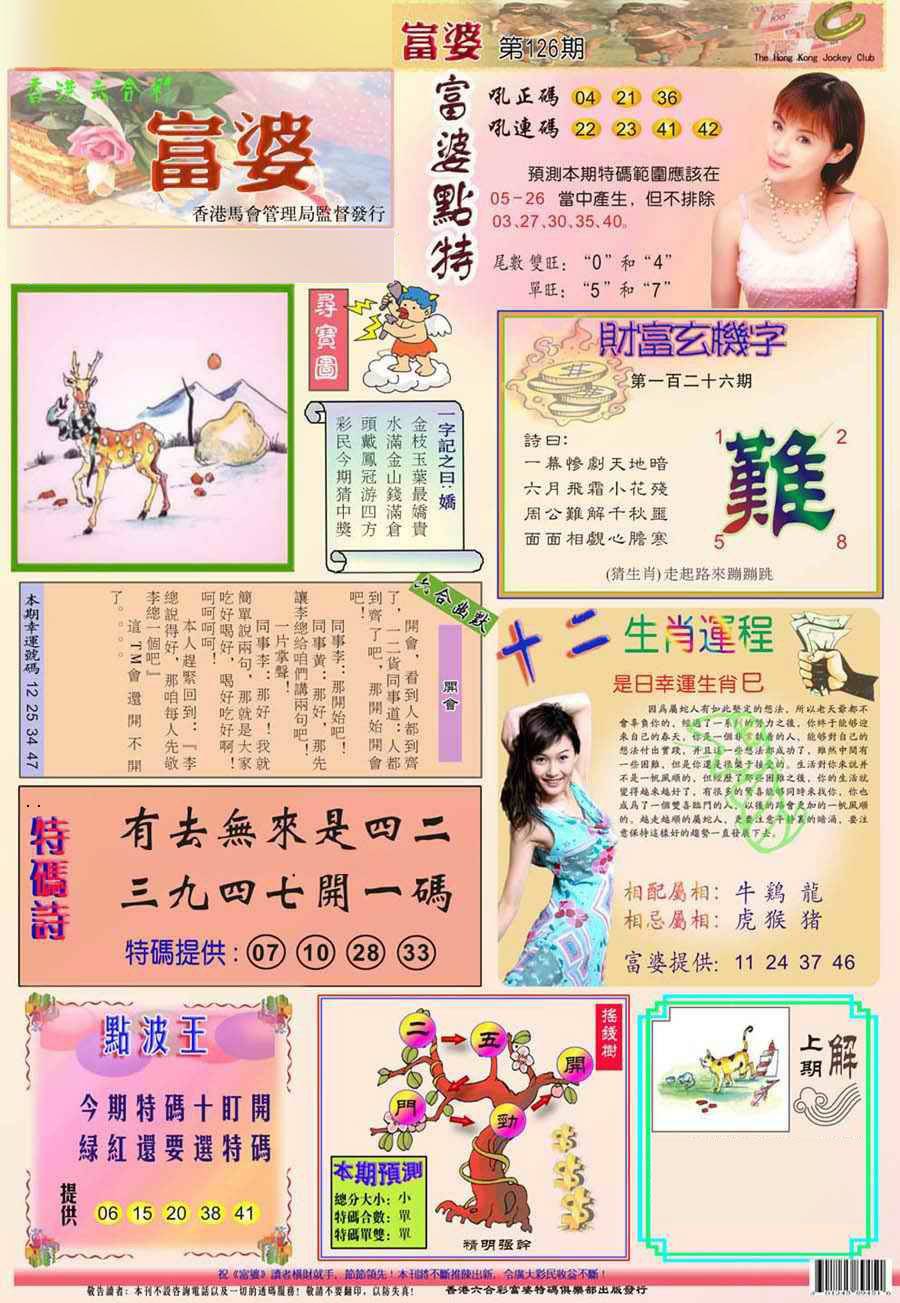 富婆 第126期
The Hong Kong Jockey Club
香港六合彩
富婆
香港馬會管理局監督發行
富婆點特
吼正碼 04 21 36
吼連碼 22 23 41 42
預測本期特碼範圍應該在
05-26 當中產生，但不排除
03、27、30、35、40。
尾數雙旺：“0”和“4”
單旺：“5”和“7”
尋寶圖
一字記之曰：嬌
金枝玉葉最嬌貴
水滿金山錢滿倉
頭戴鳳冠游四方
彩民今期猜中獎
財富玄機字
第一百二十六期
詩曰：
一幕慘劇天地暗
六月飛霜小花殘
周公難解千秋噩
面面相覷心膽寒
1 2
難
5 8
(猜生肖)走起路來蹦蹦跳
六合幽默
開會
開會，看到人都到齊
了，一二貨同事道：人都
到齊了吧，那開始開會
吧！
同事李：那開始吧！
同事黃：那好，那先
讓李總給咱們講兩句吧！
一片掌聲！
同事李：那好！我就
簡單說兩句，那就是大家
吃好喝好，喝好吃好啊！
呵呵呵呵！
本人趕緊回到：『李
總說得好，那咱每人先敬
李總一個吧』
這TM會還開不開
了。。。
本期幸運號碼 12 25 34 47
十二生肖運程
是日幸運生肖巳
因爲屬蛇人有如此堅定的想法，所以老天爺都不
會辜負你的，經過了一系列的努力之後，你終于能够迎
來自己的春天，你是一個非常執着的人，能够對自己的
想法付出實踐，并且這一些想法都成功了，雖然中間有
一些困難，但是你還是很樂于接受的。生活對你來說并
不是一帆風順的，但經歷了那些困難之後，你的生活就
變得越來越好了，有很多的驚喜能够同時來找你，你也
成爲了一個雙喜臨門的人，以後的路會更加的一帆風順
的。越走越順的屬蛇人，更要注意平静裏的暗涌，要注
意保持這樣好的趨勢一直發展下去。
相配屬相：牛 鷄 龍
相忌屬相：虎 猴 猪
富婆提供：11 24 37 46
特碼詩
有去無來是四二
三九四七開一碼
特碼提供：07 10 28 33
點波王
今期特碼十盯開
綠紅還要選特碼
提供 06 15 20 38 41
搖錢樹
二 五 開
門 勁
本期預測
總分大小：小
特碼合數：單
特碼單雙：單
精明强幹
上期解
祝《富婆》讀者橫財就手，節節領先！本刊將不斷推陳出新，令廣大彩民收益不斷！
敬告讀者：本刊不設咨詢電話以及一切的透碼服務！敬請不要翻印，以防失真！ 香港六合彩富婆特碼俱樂部出版發行